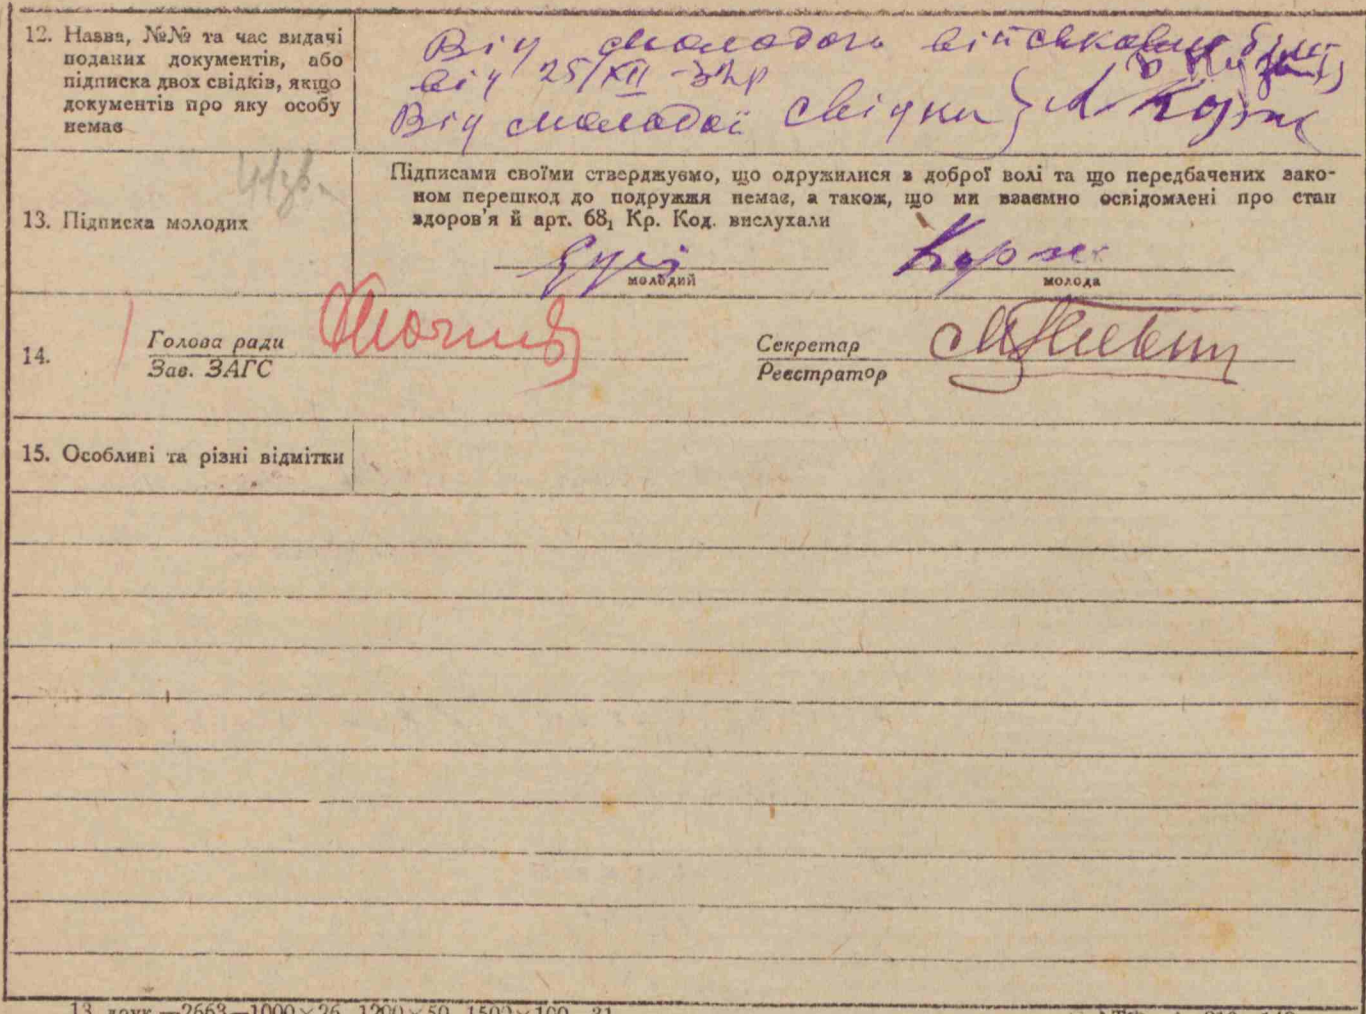 12. Назва, №№ та час видачі
поданих документів, або
підписка двох свідків, якщо
документів про яку особу
немає
Від молодого військовий біл
від 25/XII -32р
Від молодої свідки } Корж
13. Підписка молодих
Підписами своїми стверджуємо, що одружилися з доброї волі та що передбачених зако-
ном перешкод до подружжя немає, а також, що ми взаємно освідомлені про стан
здоров'я й арт. 68, Кр. Код. вислухали
Корж
молодий
молода
14.
Голова ради
Зав. ЗАГС
Секретар
Реєстратор
15. Особливі та різні відмітки
13 друк.—2663—1000×26, 1200×50, 1500×100—31